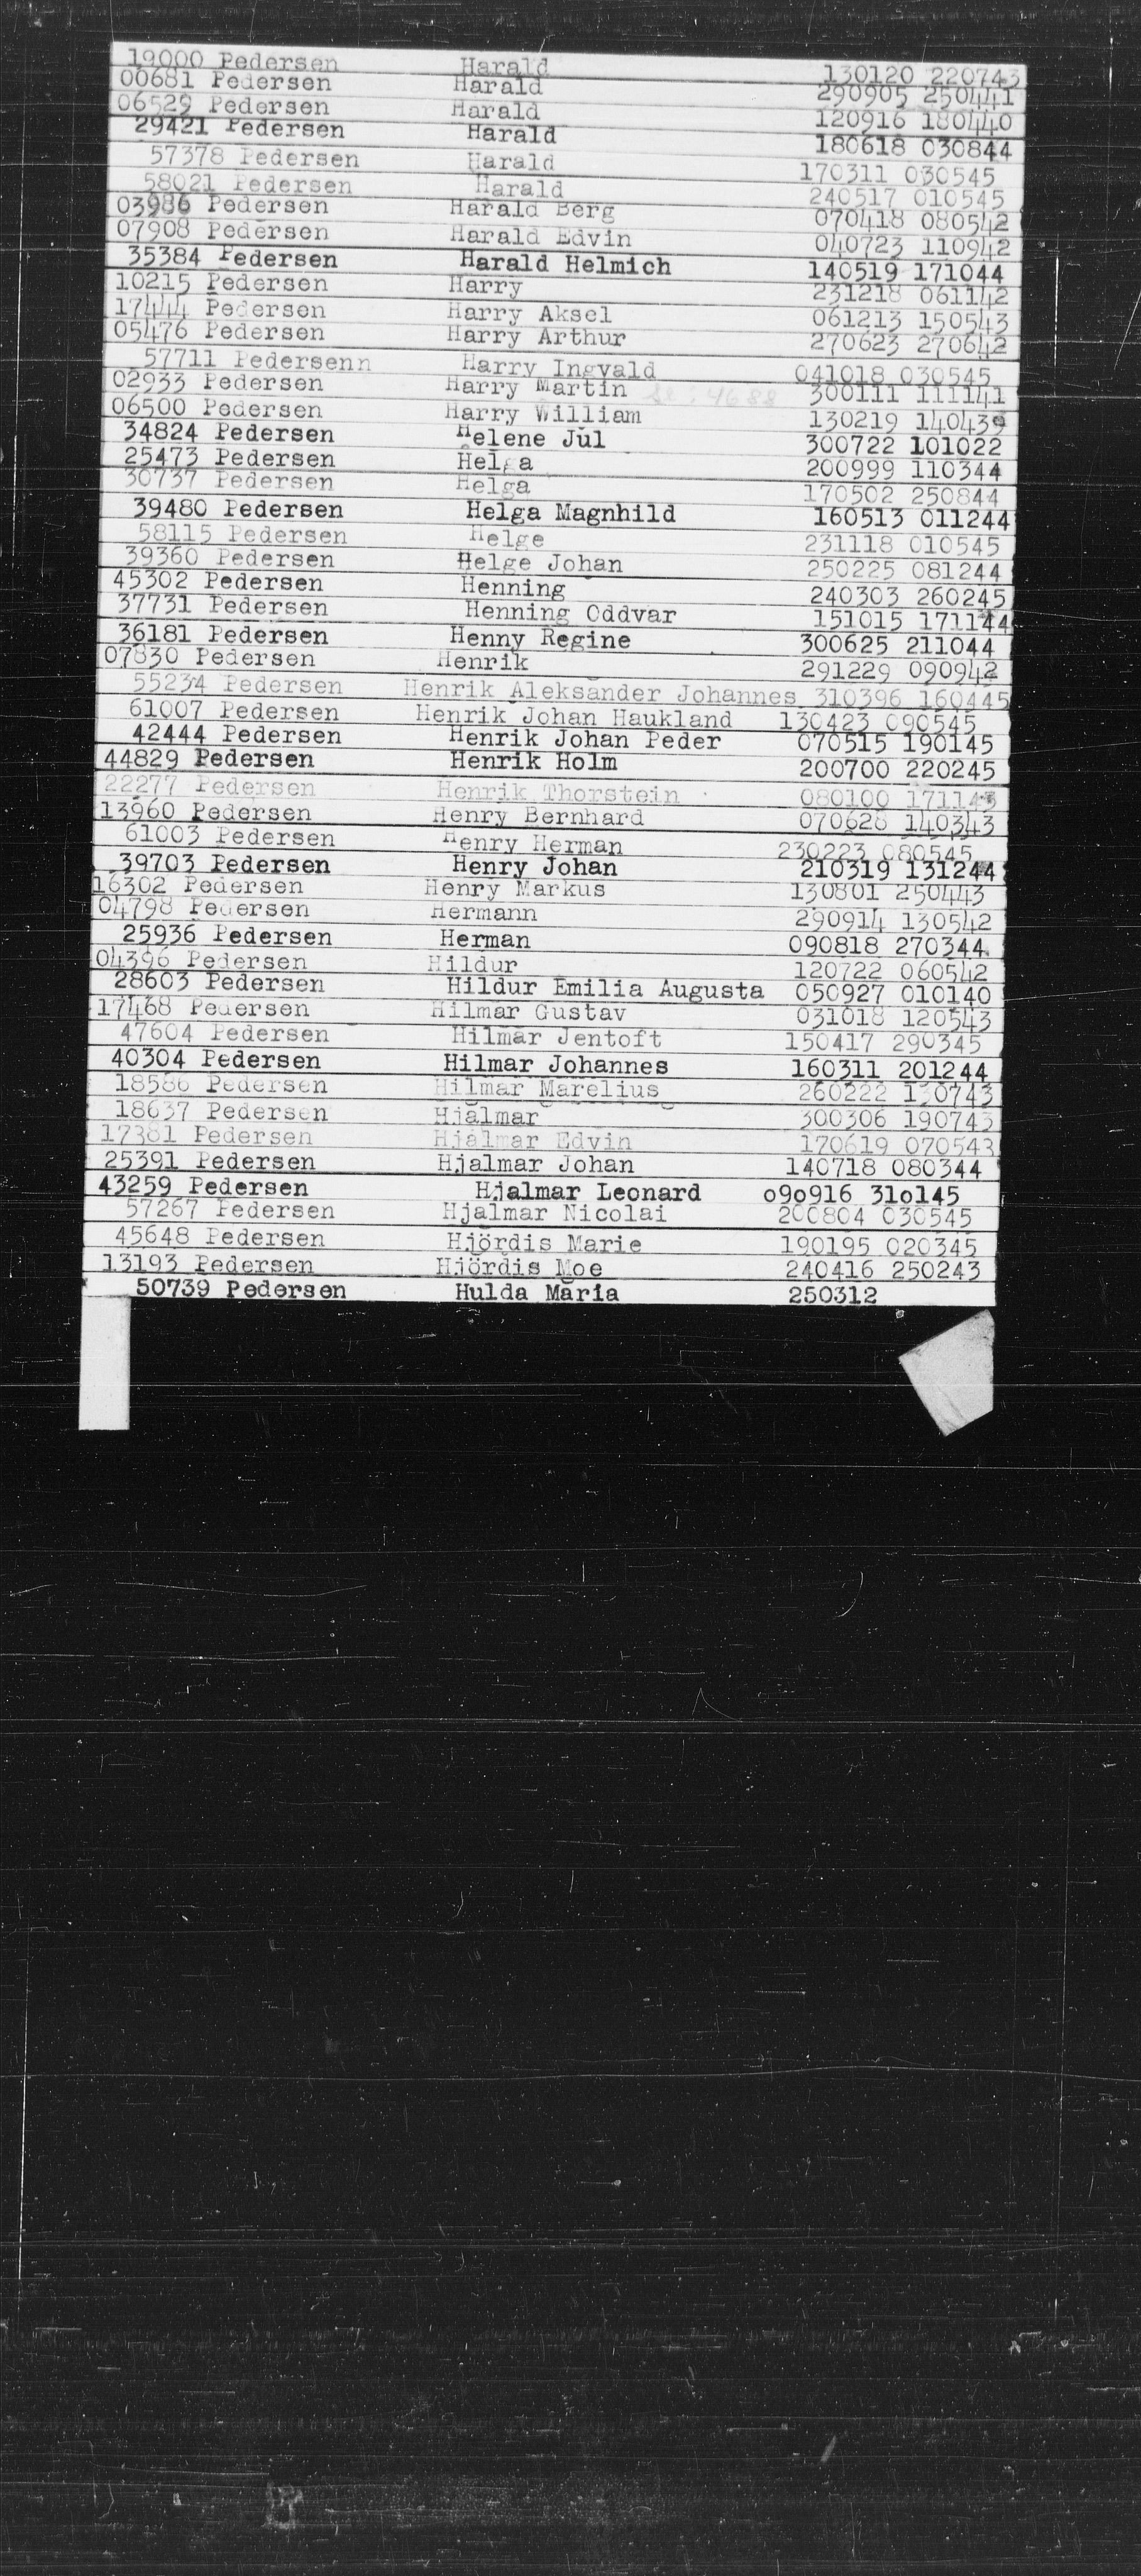 19000 Pedersen Harald 130120 220743
00681 Pedersen Harald 290905 250441
06529 Pedersen Harald 120916 180440
29421 Pedersen Harald 180618 030844
57378 Pedersen Harald 170311 030545
58021 Pedersen Harald 240517 010545
03986 Pedersen Harald Berg 070418 080542
07908 Pedersen Harald Edvin 040723 110942
35384 Pedersen Harald Helmich 140519 171044
10215 Pedersen Harry 231218 061142
17444 Pedersen Harry Aksel 061213 150543
05476 Pedersen Harry Arthur 270623 270642
57711 Pedersenn Harry Ingvald 041018 030545
02933 Pedersen Harry Martin 300111 111141
06500 Pedersen Harry William 130219 140439
34824 Pedersen Helene Jul 300722 101022
25473 Pedersen Helga 200999 110344
30737 Pedersen Helga 170502 250844
39480 Pedersen Helga Magnhild 160513 011244
58115 Pedersen Helge 231118 010545
39360 Pedersen Helge Johan 250225 081244
45302 Pedersen Henning 240303 260245
37731 Pedersen Henning Oddvar 151015 171144
36181 Pedersen Henny Regine 300625 211044
07830 Pedersen Henrik 291229 090942
55234 Pedersen Henrik Aleksander Johannes 310396 160445
61007 Pedersen Henrik Johan Haukland 130423 090545
42444 Pedersen Henrik Johan Peder 070515 190145
44829 Pedersen Henrik Holm 200700 220245
22277 Pedersen Henrik Thorstein 080100 171143
13960 Pedersen Henry Bernhard 070628 140343
61003 Pedersen Henry Herman 230223 080545
39703 Pedersen Henry Johan 210319 131244
16302 Pedersen Henry Markus 130801 250443
04798 Pedersen Hermann 290914 130542
25936 Pedersen Herman 090818 270344
04396 Pedersen Hildur 120722 060542
28603 Pedersen Hildur Emilia Augusta 050927 010140
17468 Pedersen Hilmar Gustav 031018 120543
47604 Pedersen Hilmar Jentoft 150417 290345
40304 Pedersen Hilmar Johannes 160311 201244
18586 Pedersen Hilmar Marelius 260222 130743
18637 Pedersen Hjalmar 300306 190743
17381 Pedersen Hjalmar Edvin 170619 070543
25391 Pedersen Hjalmar Johan 140718 080344
43259 Pedersen Hjalmar Leonard 090916 310145
57267 Pedersen Hjalmar Nicolai 200804 030545
45648 Pedersen Hjördis Marie 190195 020345
13193 Pedersen Hjördis Moe 240416 250243
50739 Pedersen Hulda Maria 250312